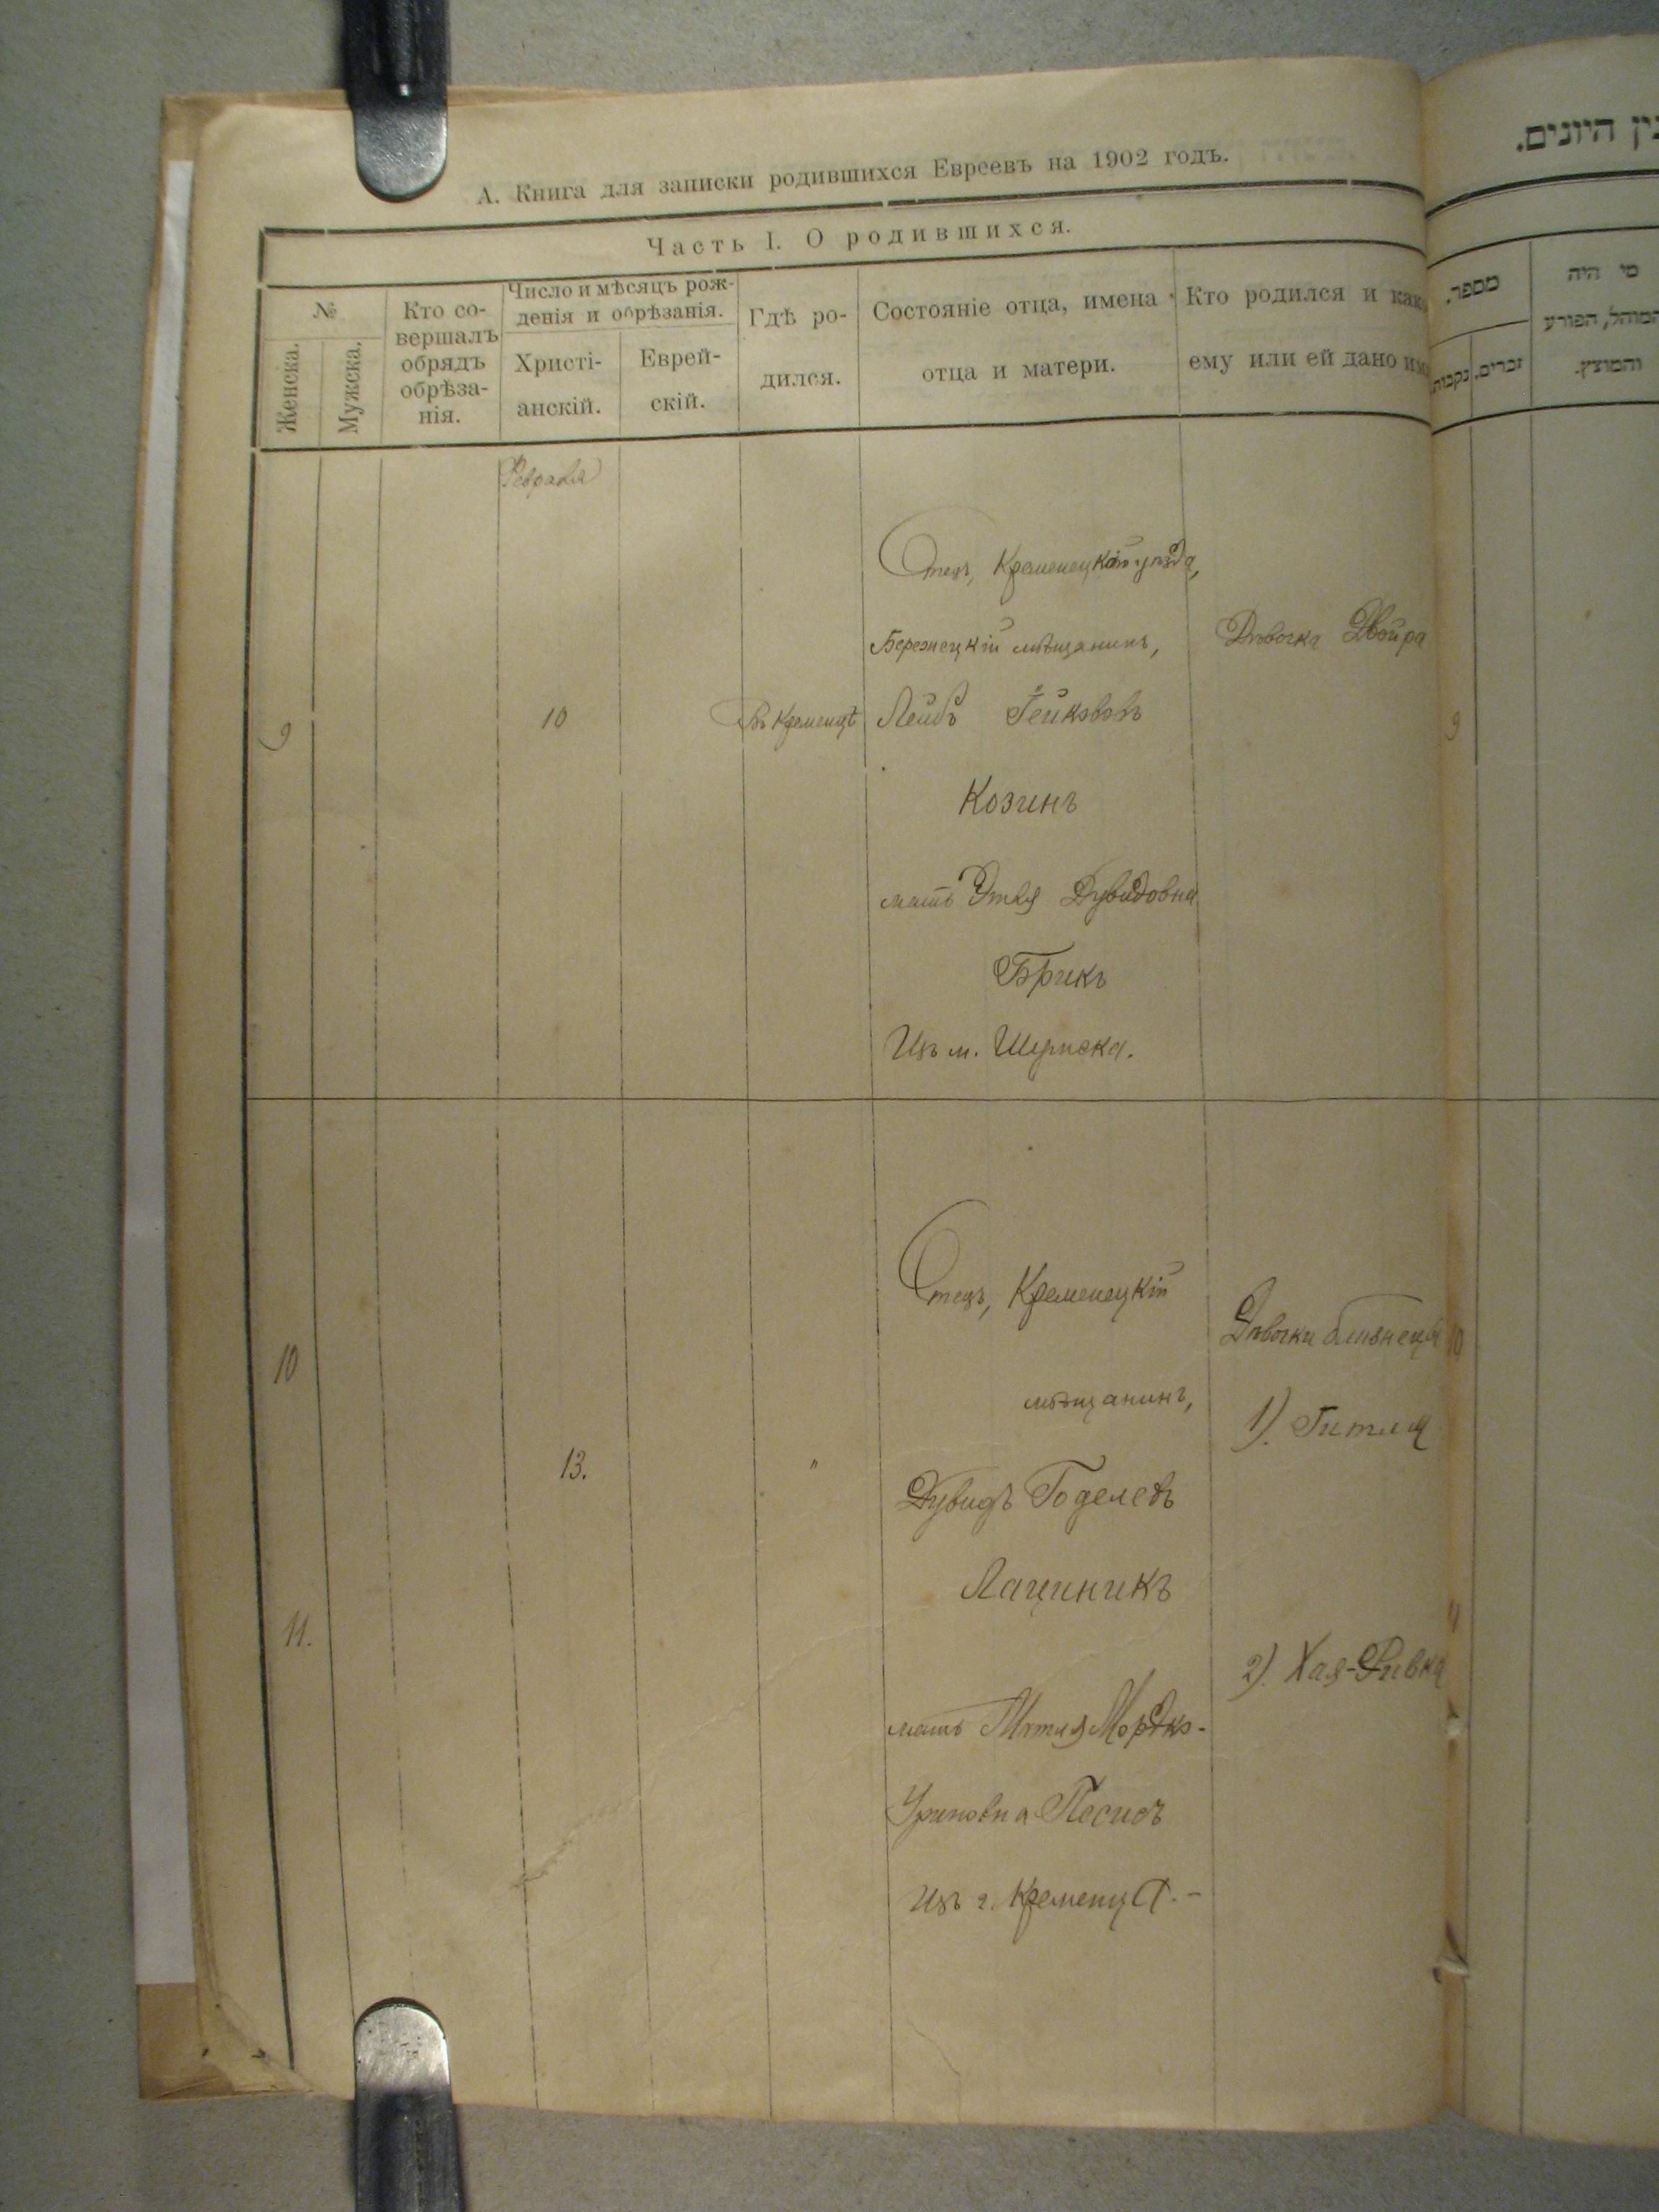 А. Книга для записки родившихся Евреевъ на 1902 годъ.
Часть I. О родившихся.
№
Женска.
Мужска.
Кто со-
вершалъ
обрядъ
обрѣза-
нія.
Число и мѣсяцъ рож-
денія и обрѣзанія.
Христі-
анскій.
Еврей-
скій.
Гдѣ ро-
дился.
Состояніе отца, имена
отца и матери.
Кто родился и как
ему или ей дано им
Февраля
9
10
Въ Кременцѣ
Отецъ, Кременецкаго уѣзда,
Бережецкій мѣщанинъ,
Лейбъ
Козинъ
мать Этля Дувидовна
Брикъ
Изъ м. Шумска.
Дѣвочка Двойра
10
11.
13.
"
Отецъ, Кременецкій
мѣщанинъ,
Дувидъ Годелевъ
Лациникъ
мать Мотля Мордко-
Уриновна Песисъ
Изъ г. Кременца.-
Дѣвочки близнецы
1). Гитля
2). Хая-Ривка
ין היונים.
מספר.
נקבות
זכרים.
מי היה
המוהל, הפורע
והמוצץ.
9
10